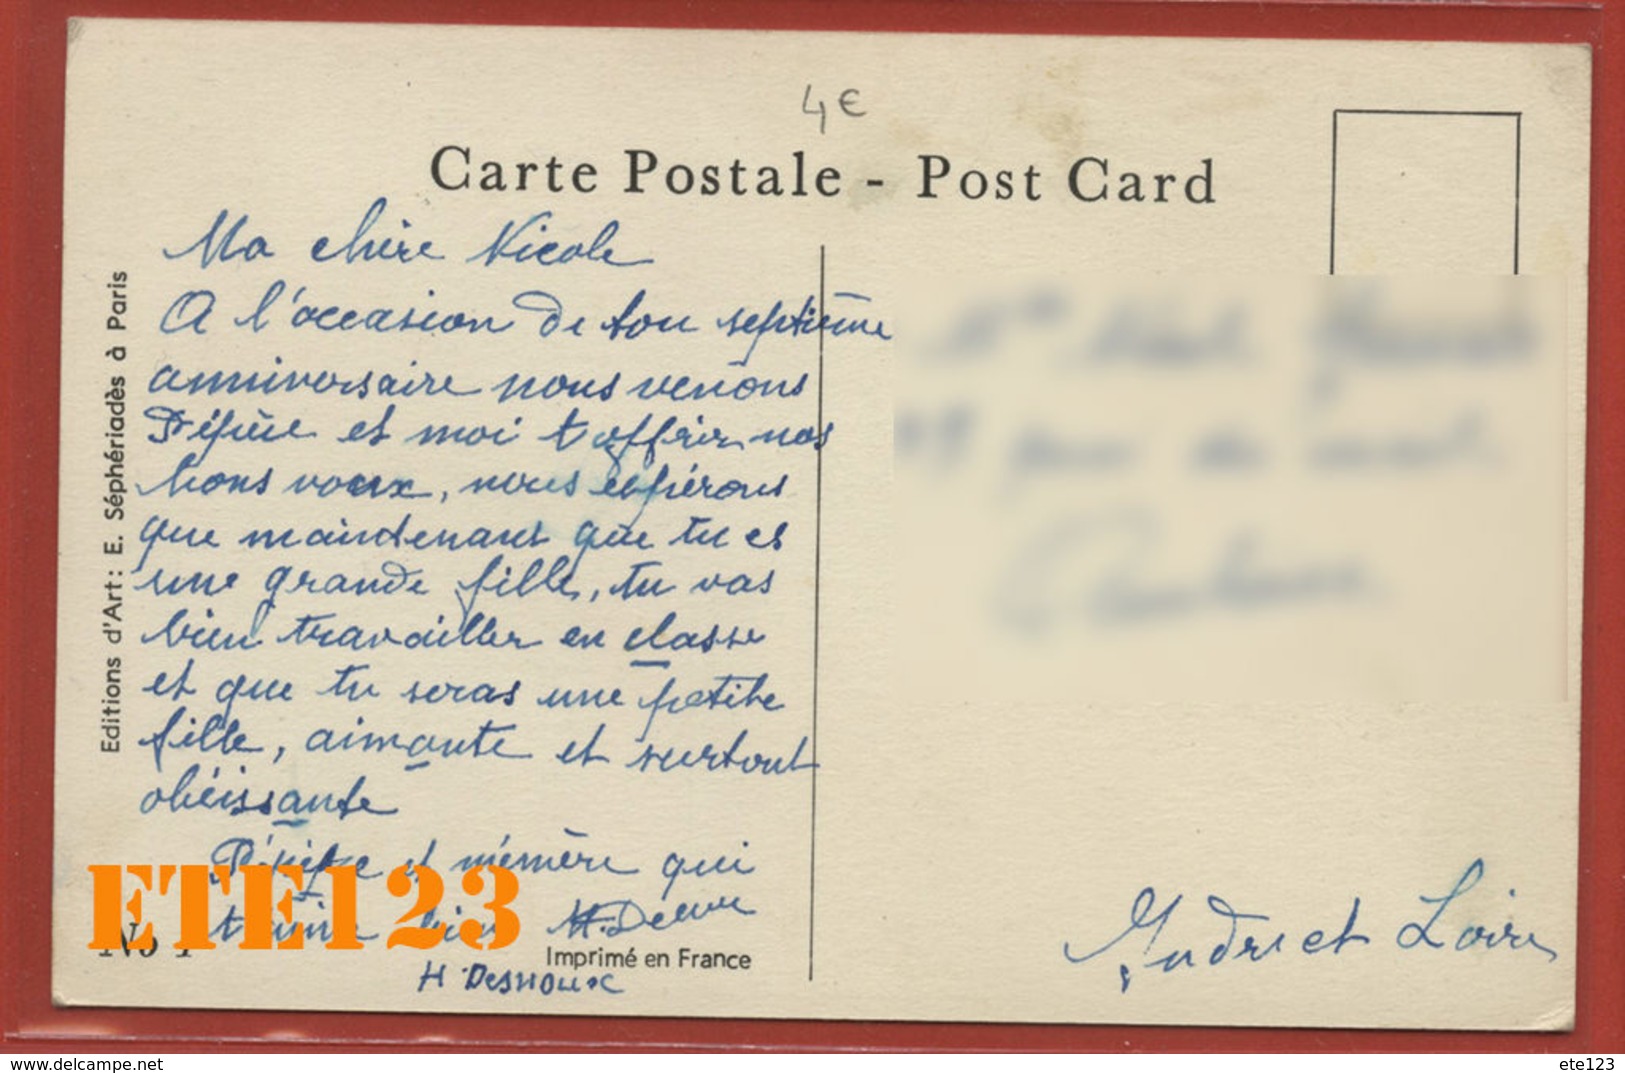 4€
Carte Postale - Post Card
Ma chère Nicole
A l'occasion de ton septième
anniversaire nous venons
Pépère et moi t'offrir nos
bons voeux, nous espérons
que maintenant que tu es
une grande fille, tu vas
bien travailler en classe
et que tu seras une petite
fille, aimante et surtout
obéissante
Pépère et mémère qui
t'aime bien
H Desnoux
Editions d'Art: E. Séphériadès à Paris
ETE123
Imprimé en France
Indre et Loire
delcampe.net
ete123